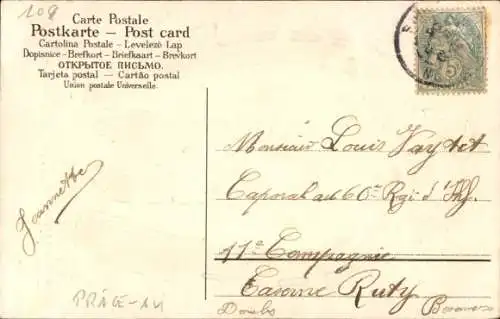 109
Carte Postale
Postkarte – Post card
Cartolina Postale – Levelezö Lap
Dopisnice – Brefkort – Briefkaart – Brevkort
ОТКРЫТОЕ ПИСЬМО.
Tarjeta postal – Cartão postal
Union postale Universelle.
Monsieur Louis Vaytet
Caporal au 60e Rgi d'Inf.
11e Compagnie
Caserne Ruty
Doubs
Jeannette
PRÄGE-AK